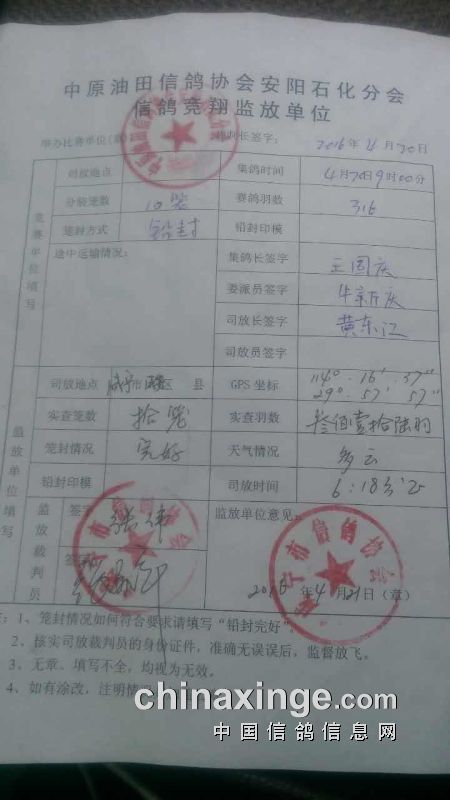 中原油田信鸽协会安阳石化分会
信鸽竞翔监放单位
举办比赛单位(章) 裁判长签字： 2016年4月20日
竞赛单位填写
司放地点 集鸽时间 4月20日9时00分
分装笼数 10笼 赛鸽羽数 316
笼封方式 铅封 铅封印模
途中运输情况： 集鸽长签字 王国庆
委派员签字 华新庆
司放长签字 黄东江
司放员签字
监放单位填写
司放地点 咸宁市 区 县 GPS坐标 114°·16′·37″
29°·57′·57″
实查笼数 拾笼 实查羽数 叁佰壹拾陆羽
笼封情况 完好 天气情况 多云
铅封印模 司放时间 6:18分
监放裁判员 签字 张伟 监放单位意见：
签字
咸宁市信鸽协会
2016年4月21日(章)
注：1、笼封情况如何符合要求请填写“铅封完好”。
2、核实司放裁判员的身份证件，准确无误误后，监督放飞。
3、无章、填写不全，均视为无效。
4、如有涂改，注明情况
chinaxinge.com
中国信鸽信息网